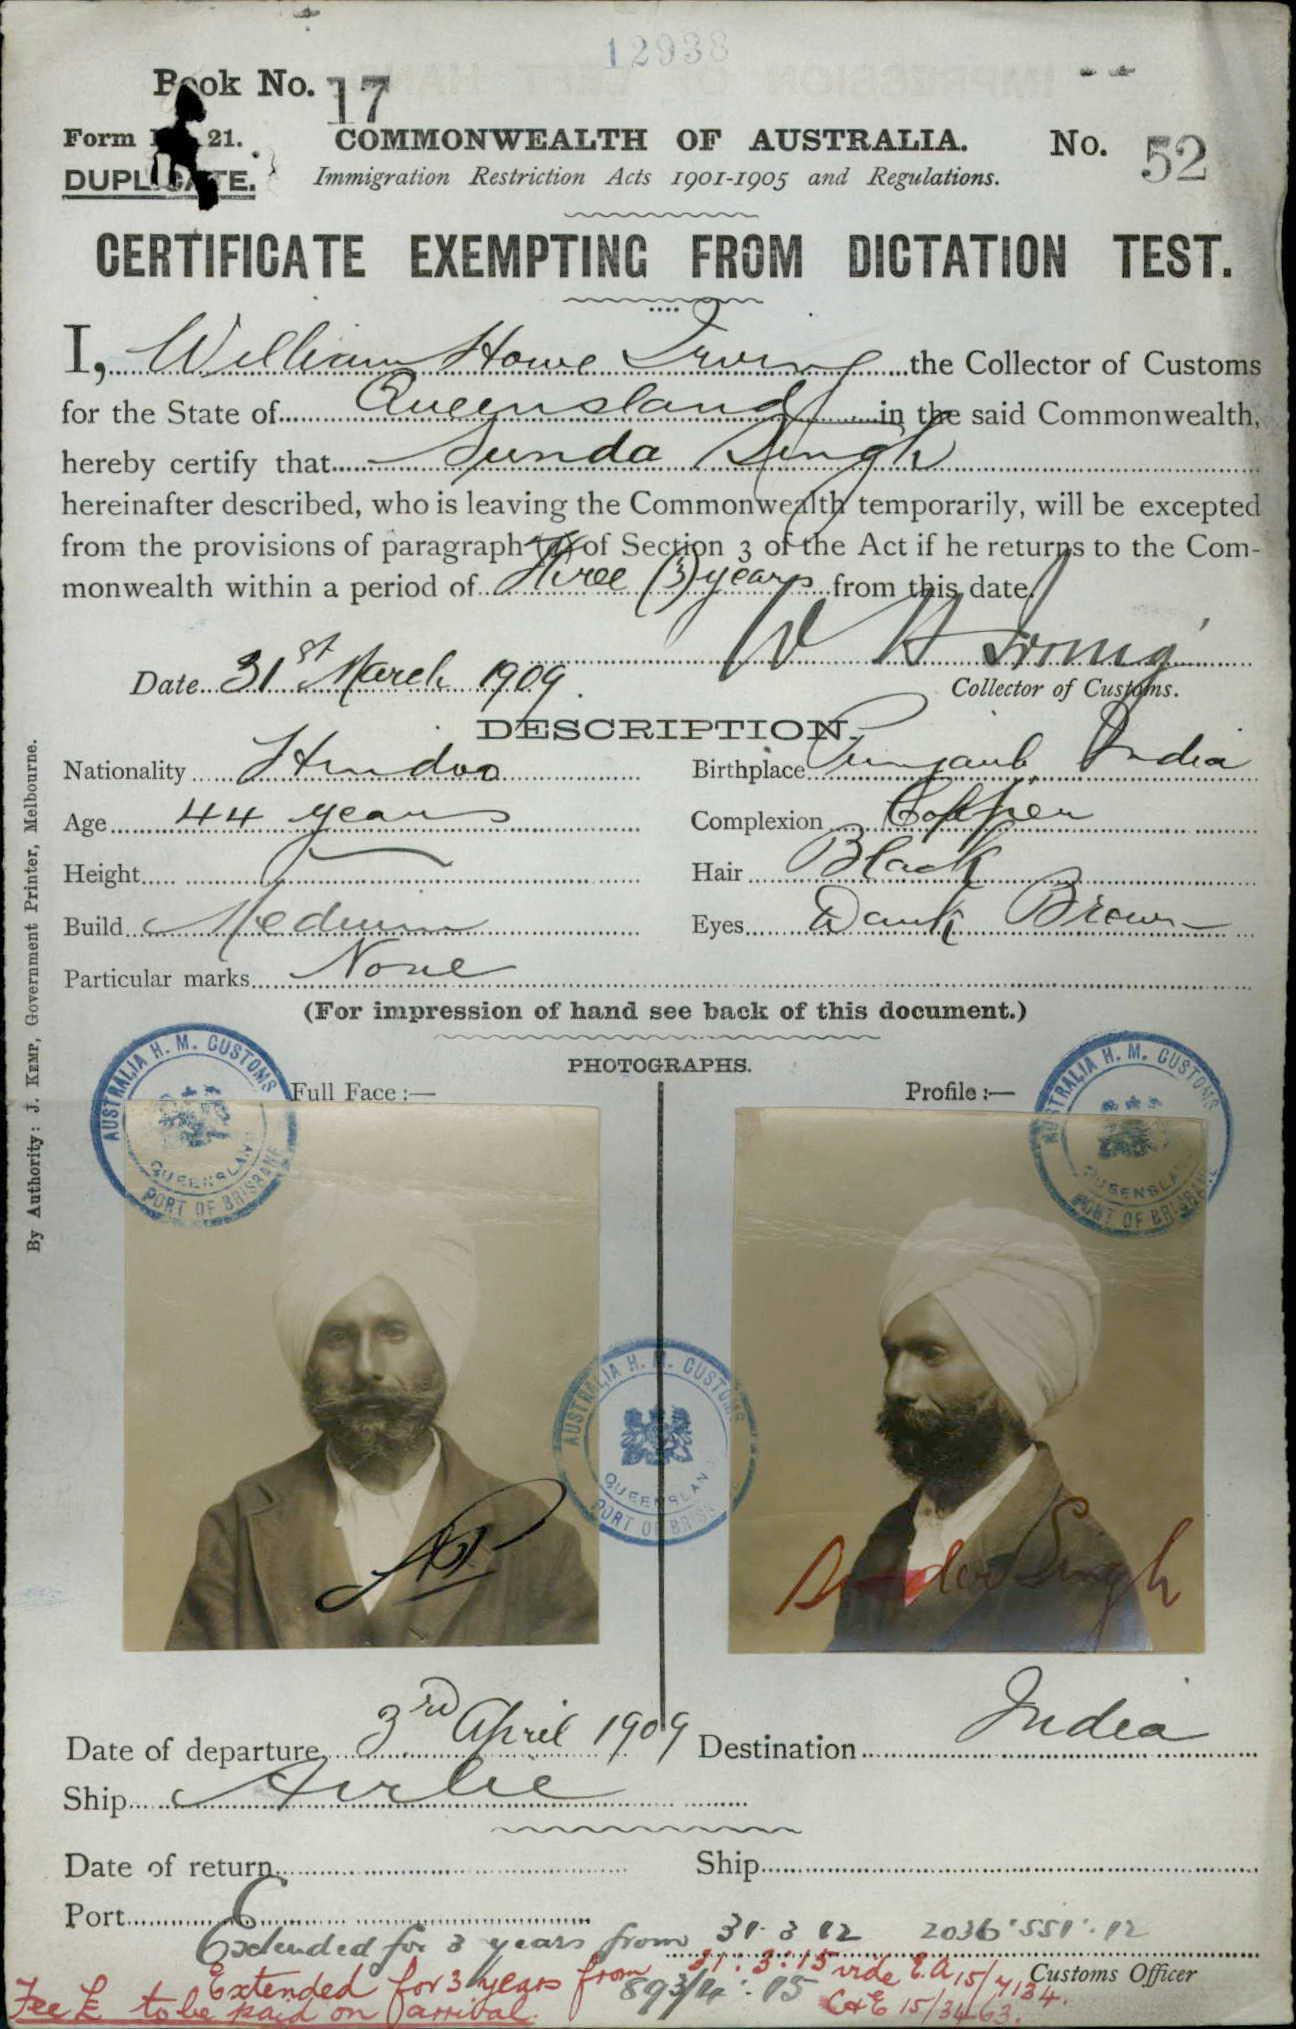 12938
Book No. 17
Form 21.
COMMONWEALTH OF AUSTRALIA.
No. 52
DUPLICATE.
Immigration Restriction Acts 1901-1905 and Regulations.
CERTIFICATE EXEMPTING FROM DICTATION TEST.
I, William Howe Irving the Collector of Customs
for the State of Queensland in the said Commonwealth,
hereby certify that Sunda Singh
hereinafter described, who is leaving the Commonwealth temporarily, will be excepted
from the provisions of paragraph (a) of Section 3 of the Act if he returns to the Com-
monwealth within a period of Three (3) years from this date.
W H Irving
Date 31st March 1909.
Collector of Customs.
DESCRIPTION.
Nationality Hindoo
Birthplace Punjaub India
Age 44 years
Complexion Copper
Height
Hair Black
Build Medium
Eyes Dark Brown
Particular marks None
(For impression of hand see back of this document.)
PHOTOGRAPHS.
Full Face :—
Profile :—
AUSTRALIA H. M. CUSTOMS
QUEENSLAND
PORT OF BRISBANE
AUSTRALIA H. M. CUSTOMS
QUEENSLAND
PORT OF BRISBANE
AUSTRALIA H. M. CUSTOMS
QUEENSLAND
PORT OF BRISBANE
Singh
Date of departure 3rd April 1909
Destination India
Ship Airlie
Date of return
Ship
Port
Extended for 3 years from 31 3 12
Extended for 3 years from 31:3:15 vide E.A 15/4134.
Customs Officer
Fee £ to be paid on arrival.
C&E 15/3463.
By Authority: J. KEMP, Government Printer, Melbourne.